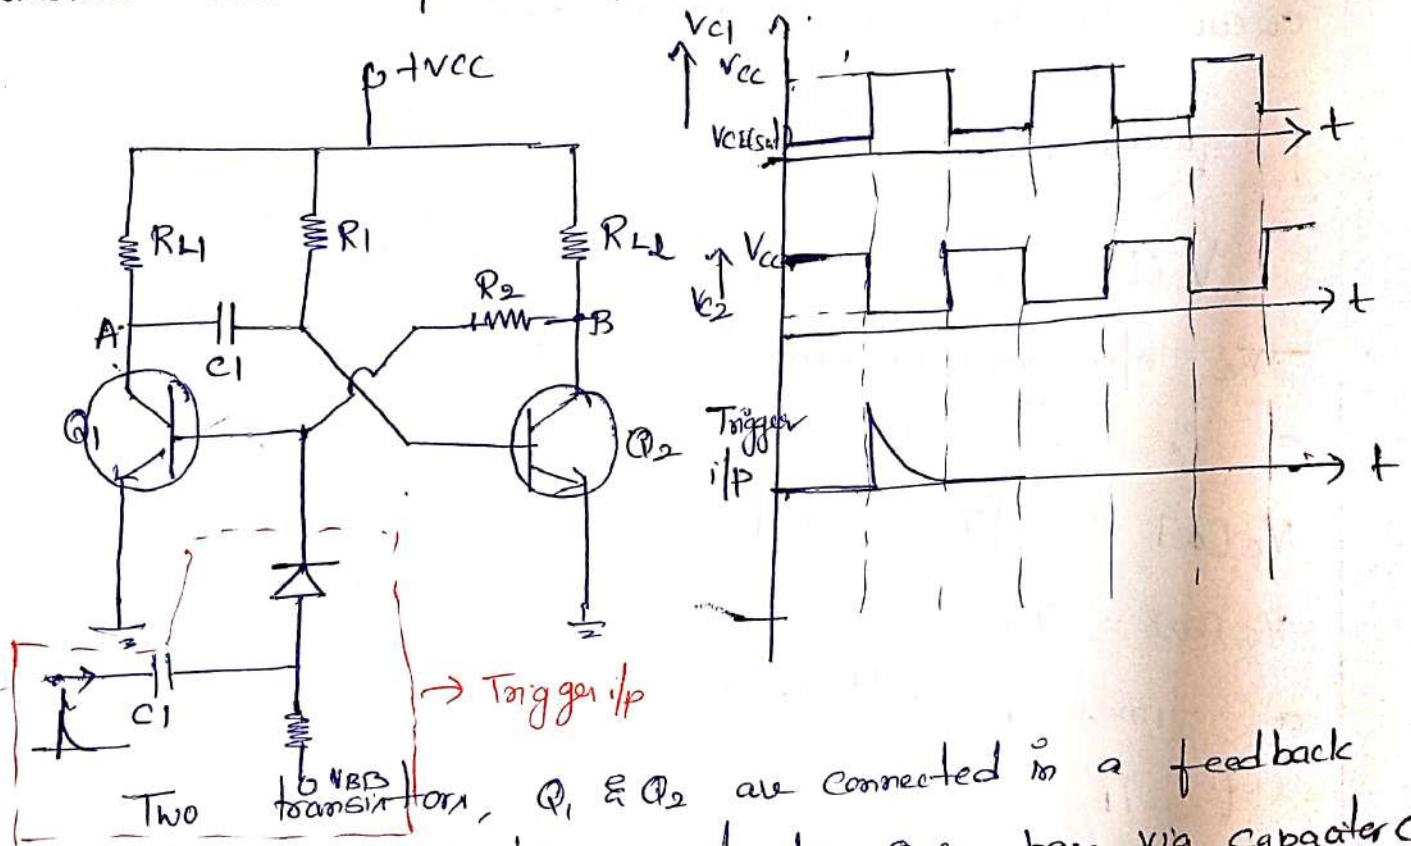 +VCC
RL1
R1
RL2
R2
A
B
C1
Q1
Q2
C1
VBB
→ Trigger i/p
VC1
VCC
VCE(sat)
t
VCC
VC2
t
Trigger
i/p
t
Two transistors, Q1 & Q2 are connected in a feedback
via capacitor C